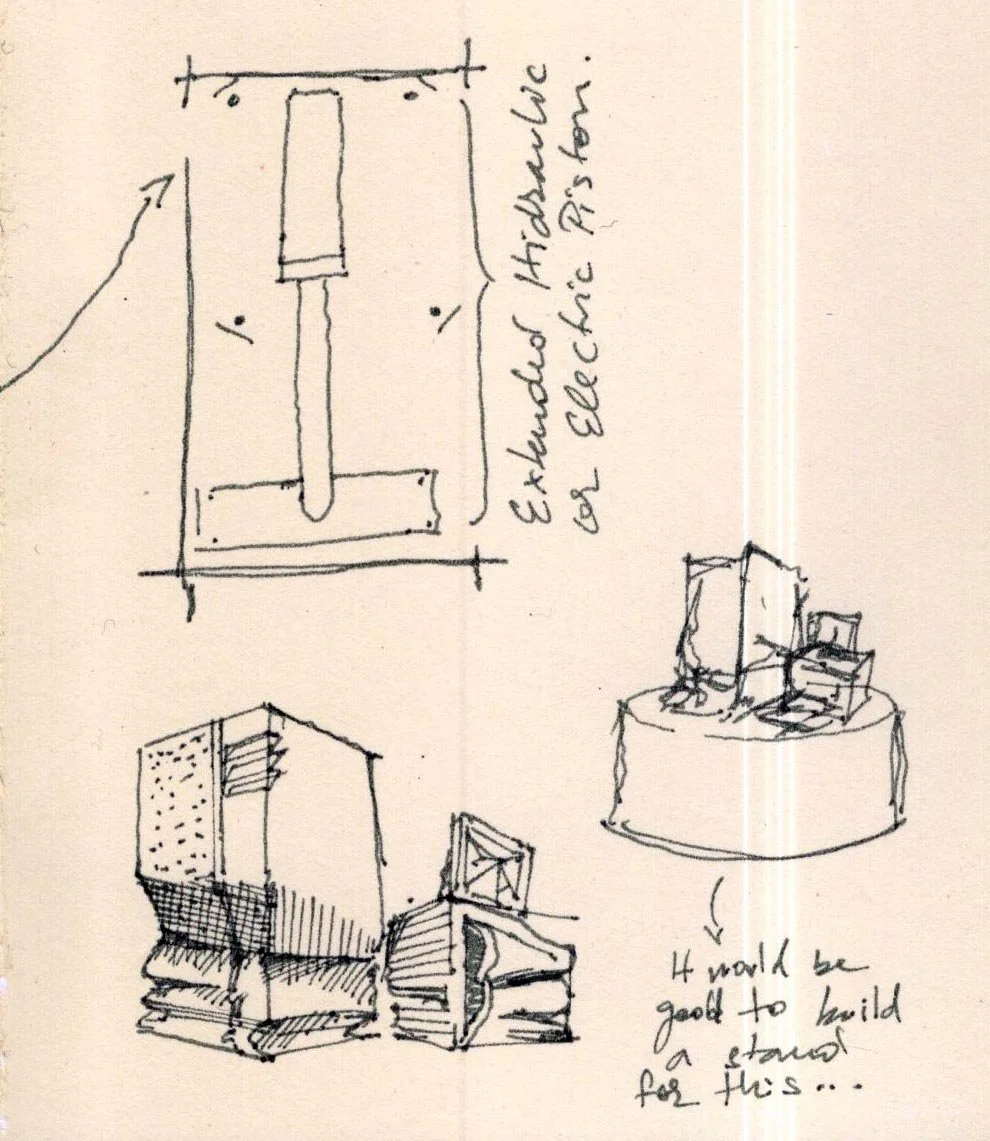 Extended Hidraulic
or Electric Piston.
It would be
good to build
a stand
for this...